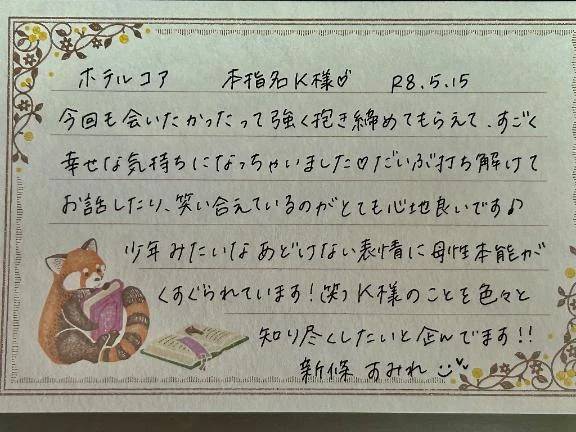 ホテルコア 本指名K様♡ R8.5.15
今回も会いたかったって強く抱き締めてもらえて、すごく
幸せな気持ちになっちゃいました♡だいぶ打ち解けて
お話したり、笑い合えているのがとても心地良いです♪
少年みたいなあどけない表情に母性本能が
くすぐられています!(笑)K様のことを色々と
知り尽くしたいと企んでます!!
新條 すみれ